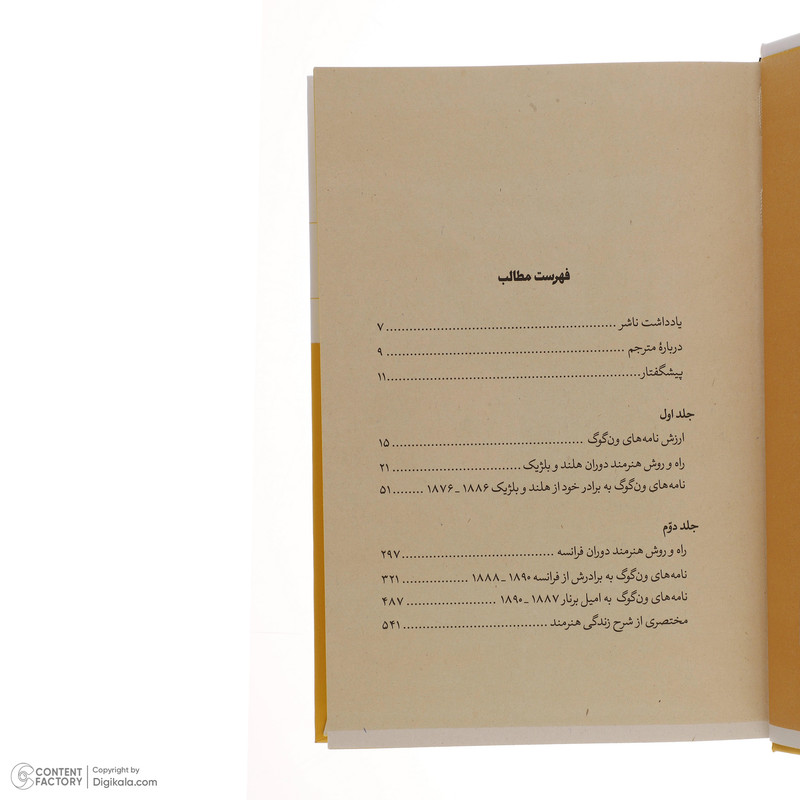 فهرست مطالب
یادداشت ناشر ............................................................ ۷
دربارهٔ مترجم ............................................................ ۹
پیشگفتار................................................................۱۱
جلد اول
ارزش نامه‌های ون‌گوگ ................................................ ۱۵
راه و روش هنرمند دوران هلند و بلژیک ................................ ۲۱
نامه‌های ون‌گوگ به برادر خود از هلند و بلژیک ۱۸۸۶ ـ ۱۸۷۶ ........ ۵۱
جلد دوّم
راه و روش هنرمند دوران فرانسه ....................................... ۲۹۷
نامه‌های ون‌گوگ به برادرش از فرانسه ۱۸۹۰ ـ ۱۸۸۸ ................. ۳۲۱
نامه‌های ون‌گوگ به امیل برنار ۱۸۸۷ ـ ۱۸۹۰ ....................... ۴۸۷
مختصری از شرح زندگی هنرمند ..................................... ۵۴۱
CONTENT FACTORY
Copyright by
Digikala.com